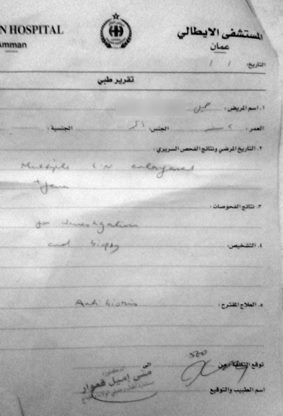 N HOSPITAL
Amman
المستشفى الايطالي
عمان
التاريخ: / /
تقرير طبي
١. اسم المريض:
العمر: الجنس: الجنسية:
٢. التاريخ المرضي ونتائج الفحص السريري:
Multiple L.N enlarged
٣. نتائج الفحوصات:
for investigation
and biopsy
٤. التشخيص:
٥. العلاج المقترح:
Antibiotic
اسم الطبيب والتوقيع